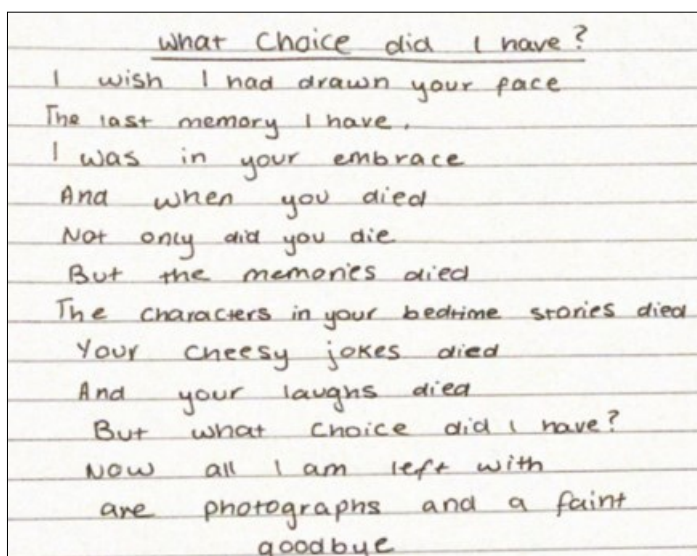 What Choice did I have?
I wish I had drawn your face
The last memory I have.
I was in your embrace
And when you died
Not only did you die
But the memories died
The characters in your bedtime stories died
Your cheesy jokes died
And your laughs died
But what choice did I have?
Now all I am left with
are photographs and a faint
goodbye